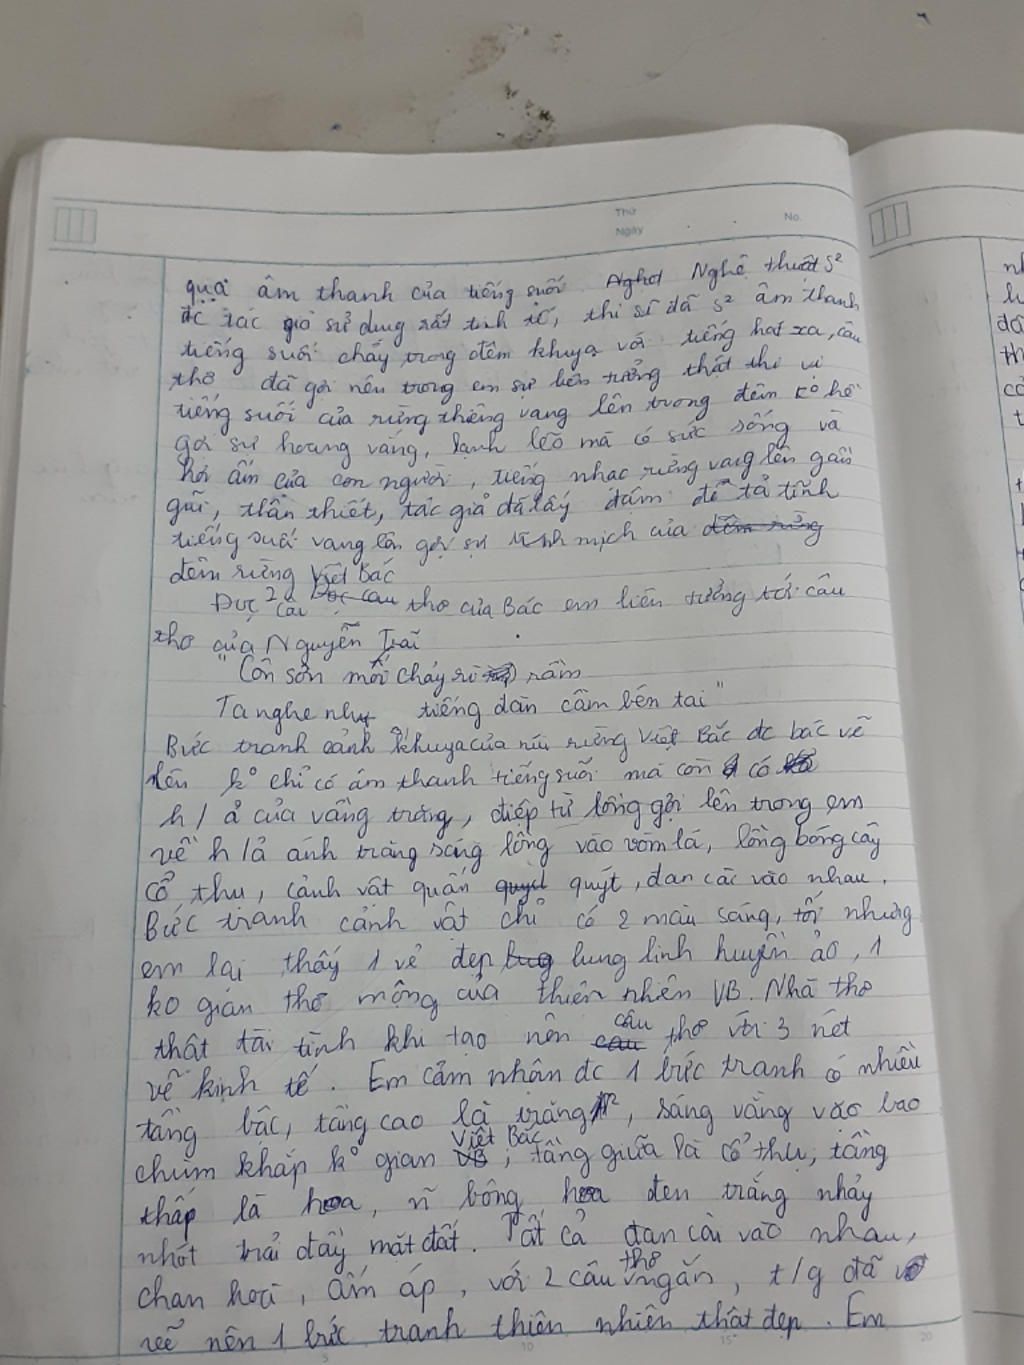 Thứ
Ngày
No.
quạ âm thanh của tiếng suối Nghệ thuật s²
đc tác giả sử dụng rất tinh tế, thi sĩ đã s² âm thanh
tiếng suối chảy trong đêm khuya với tiếng hát xa, câu
thơ đã gợi nên trong em sự liên tưởng thật thi vị
tiếng suối của rừng thiêng vang lên trong đêm ko hề
gợi sự hoang vắng, lạnh lẽo mà có sức sống và
hơi ấm của con người, tiếng nhạc rừng vang lên gần
gũi, thân thiết, tác giả đã lấy động để tả tĩnh
tiếng suối vang lên gợi sự tĩnh mịch của đêm rừng
đêm rừng Việt Bắc
Đọc 2 câu thơ của Bác em liên tưởng tới câu
thơ của Nguyễn Trãi
"Côn sơn suối chảy rì rầm
Ta nghe như tiếng đàn cầm bên tai"
Bức tranh cảnh khuya của núi rừng Việt Bắc đc bác vẽ
lên ko chỉ có âm thanh tiếng suối mà còn có
h/ả của vầng trăng, điệp từ lồng gợi lên trong em
về h/ả ánh trăng sáng lồng vào vòm lá, lồng bóng cây
cổ thụ, cảnh vật quấn quýt, đan cài vào nhau.
Bức tranh cảnh vật chỉ có 2 màu sáng, tối nhưng
em lại thấy 1 vẻ đẹp lung linh huyền ảo, 1
ko gian thơ mộng của thiên nhiên VB. Nhà thơ
thật tài tình khi tạo nên câu thơ với 3 nét
vẽ kinh tế. Em cảm nhận đc 1 bức tranh có nhiều
tầng bậc, tầng cao là trăng, sáng vằng vặc bao
chùm khắp ko gian Việt Bắc, tầng giữa là cổ thụ, tầng
thấp là hoa, n~ bông hoa đen trắng nhảy
nhót trải đầy mặt đất. Tất cả đan cài vào nhau,
chan hoà, ấm áp, với 2 câu thơ ngắn, t/g đã
vẽ nên 1 bức tranh thiên nhiên thật đẹp. Em